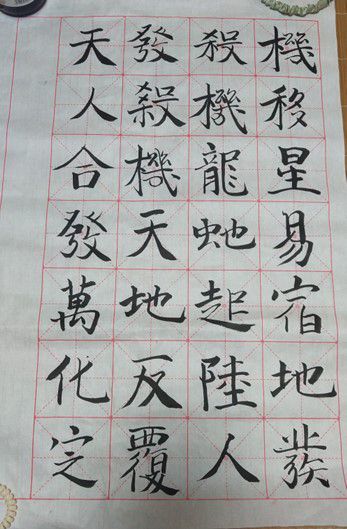 機移星易宿地發
殺機龍虵起陸人
發殺機天地反覆
天人合發萬化定